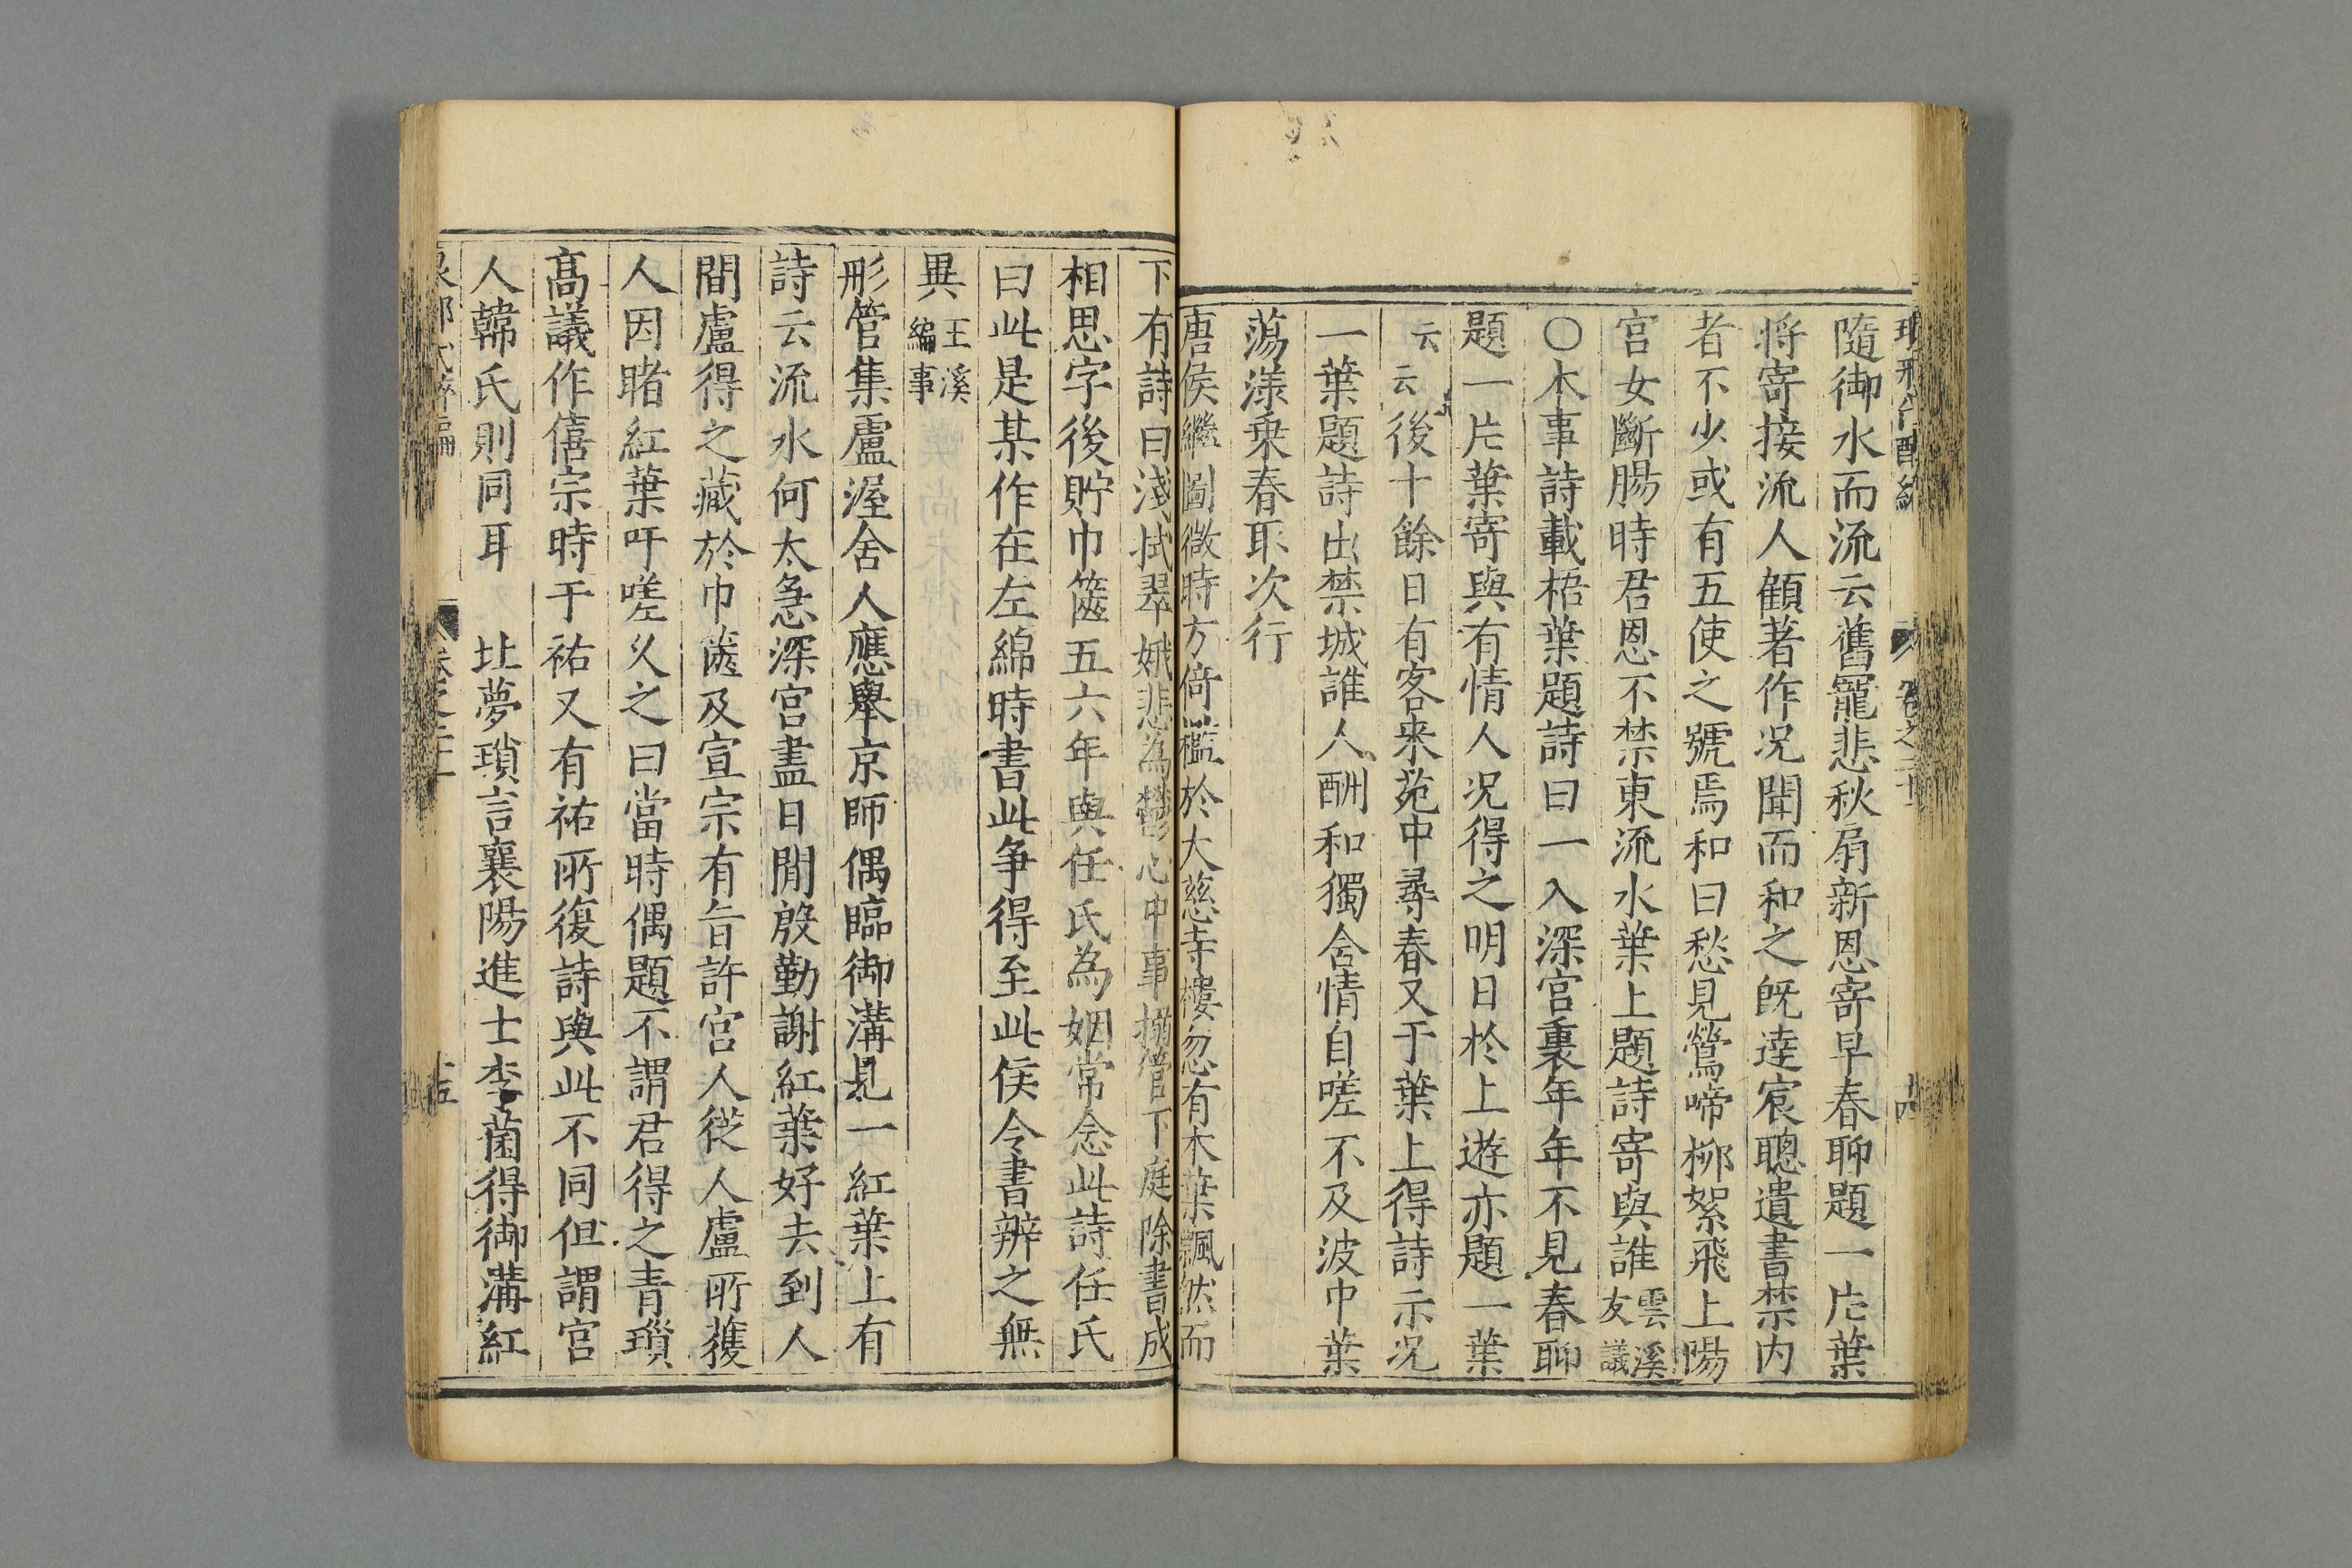 隨御水而流云舊寵悲秋扇新恩寄早春聊題一片葉
將寄接流人顧著作况聞而和之既達宸聰遺書禁内
者不少或有五使之號焉和曰愁見鶯啼柳絮飛上陽
宫女斷腸時君恩不禁東流水葉上題詩寄與誰雲溪友議
〇本事詩載梧葉題詩曰一入深宫裏年年不見春聊
題一片葉寄與有情人况得之明日於上遊亦題一葉
云云後十餘日有客来苑中尋春又于葉上得詩示况
一葉題詩出禁城誰人酬和獨含情自嗟不及波中葉
蕩漾乗春取次行
唐侯繼圖微時方倚檻於大慈寺樓忽有木葉飄然而
下有詩曰淺拭翠娥悲為鬱心中事搦管下庭除書成
相思字後貯巾篋五六年與任氏為姻常念此詩任氏
曰此是某作在左綿時書此争得至此侯令書辨之無
異王溪編事
彤管集盧渥舍人應舉京師偶臨御溝見一紅葉上有
詩云流水何太急深宫盡日閒殷勤謝紅葉好去到人
間盧得之藏於巾篋及宣宗有旨許宫人從人盧所獲
人因睹紅葉吁嗟久之曰當時偶題不謂君得之青瑣
高議作僖宗時于祐又有祐所復詩與此不同但謂宫
人韓氏則同耳 北夢瑣言襄陽進士李茵得御溝紅